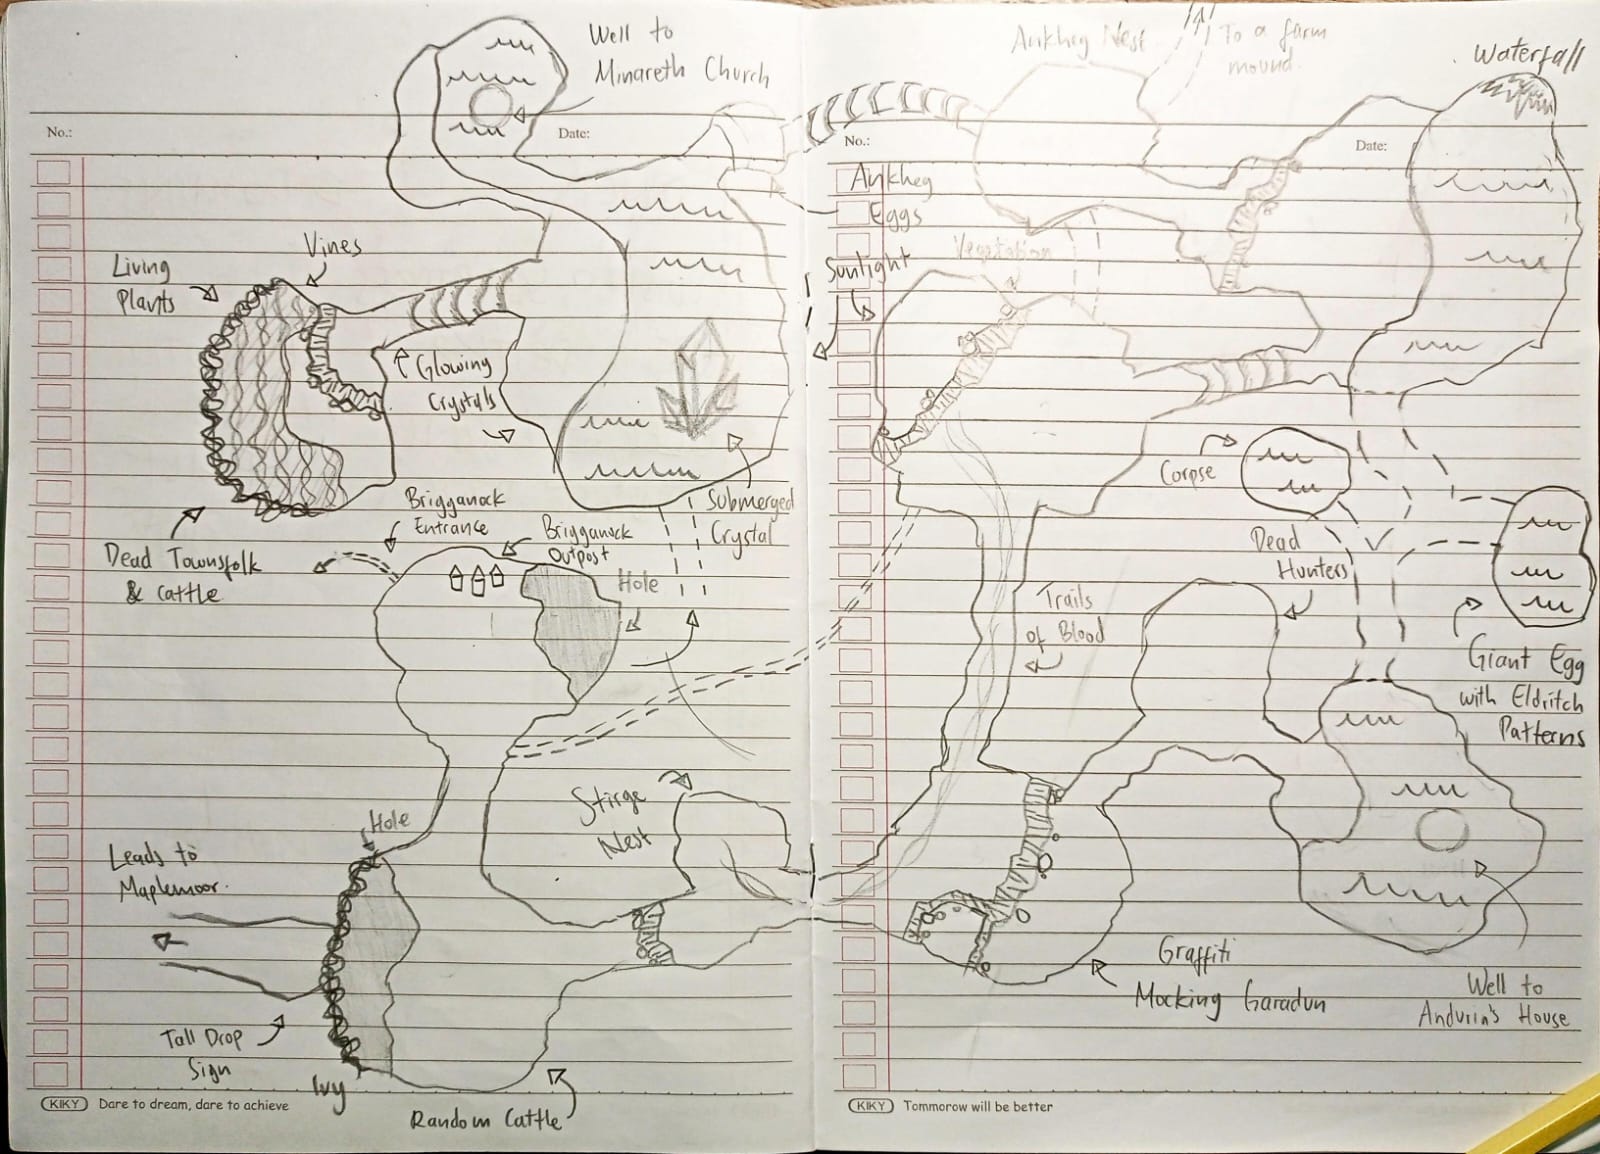 Well to
Minareth Church
No.:
Date:
Vines
Living
Plants
Glowing
Crystals
Submerged
Crystal
Dead Townsfolk
& Cattle
Brigganock
Entrance
Brigganock
Outpost
Hole
Stirge
Nest
Hole
Leads to
Maplemoor.
Tall Drop
Sign
Ivy
Random Cattle
KIKY Dare to dream, dare to achieve
Ankheg Nest
To a farm
mound.
Waterfall
No.:
Date:
Ankheg
Eggs
Sunlight
Vegetation
Corpse
Dead
Hunters
Trails
of Blood
Giant Egg
with Eldritch
Patterns
Graffiti
Mocking Garadun
Well to
Andurin's House
KIKY Tommorow will be better